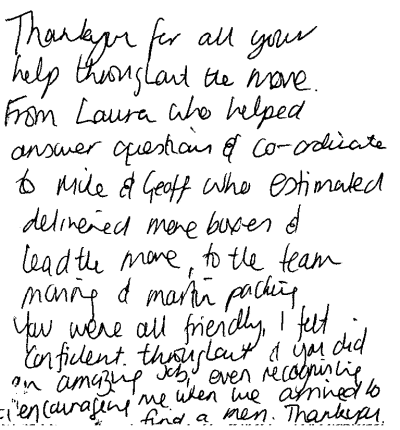 Thankyou for all your
help throughout the move.
From Laura who helped
answer questions & co-ordinate
to Mike & Geoff who estimated
delivered more boxes &
lead the move, to the team
moving & martin packing
You were all friendly, I felt
confident throughout & you did
an amazing job, even recognising
& encouraging me when we arrived to
find a mess. Thankyou.